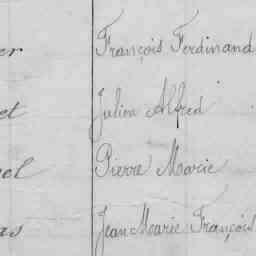 er François Ferdinand
et Julien Alfred
el Pierre Marie
as Jean Marie François